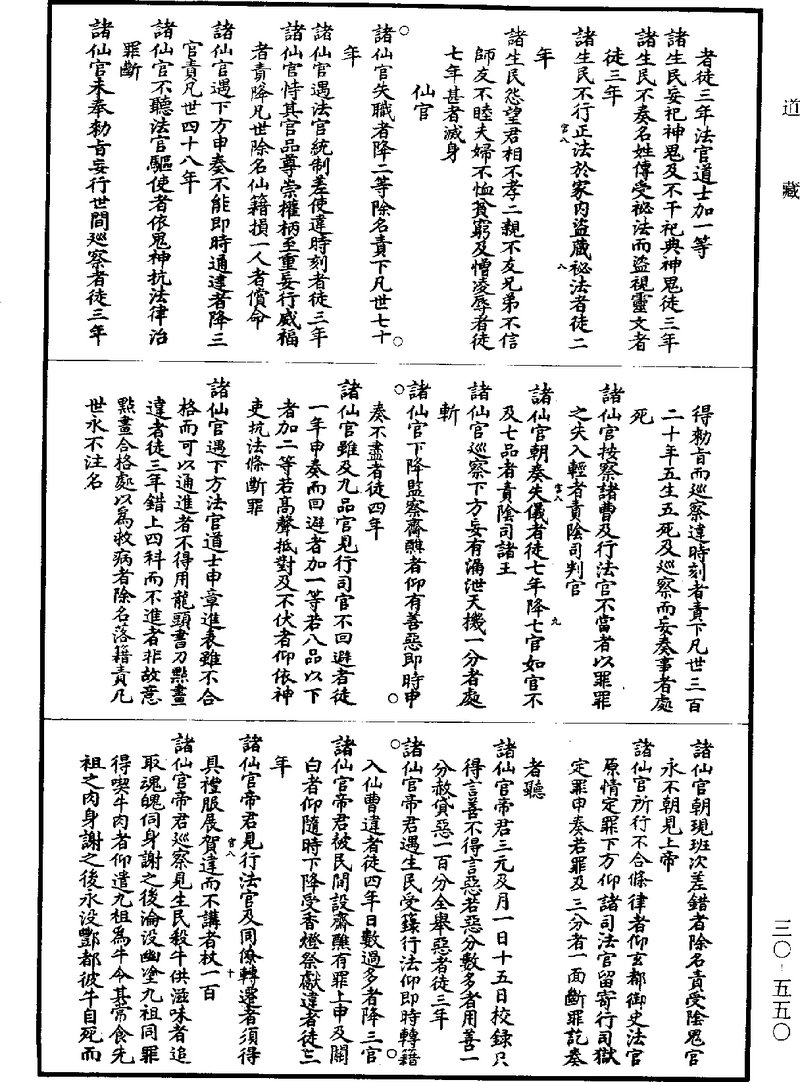 道藏
者徒三年法官道士加一等
諸生民妄祀神鬼及不干祀典神鬼徒三年
諸生民不奏名姓傳受祕法而盜視靈文者
徒三年
諸生民不行正法於家內盜藏祕法者徒二
年
諸生民怨望君相不孝二親不友兄弟不信
師友不睦夫婦不恤貧窮及憎凌辱者徒
七年甚者滅身
仙官
諸仙官失職者降二等除名責下凡世七十
年
諸仙官遇法官統制差使違時刻者徒三年
諸仙官恃其官品尊崇權柄至重妄行威福
者責降凡世除名仙籍損一人者償命
諸仙官遇下方申奏不能即時通達者降三
官責凡世四十八年
諸仙官不聽法官驅使者依鬼神抗法律治
罪斷
諸仙官未奉勑旨妄行世間巡察者徒三年
得勑旨而巡察違時刻者責下凡世三百
二十年五生五死及巡察而妄奏事者處
死
諸仙官按察諸曹及行法官不當者以罪罪
之失入輕者責陰司判官
諸仙官朝奏失儀者徒七年降七官如官不
及七品者責陰司諸王
諸仙官巡察下方妄有漏泄天機一分者處
斬
諸仙官下降監察齋醮者仰有善惡即時申
奏不盡者徒四年
諸仙官雖及九品官見行司官不回避者徒
一年申奏而回避者加一等若八品以下
者加二等若高聲抵對及不伏者仰依神
吏抗法條斷罪
諸仙官遇下方法官道士申章進表雖不合
格而可以通進者不得用龍頭書刀點畫
違者徒三年錯上四科而不進者非故意
點畫合格處以為救病者除名落籍責凡
世永不注名
諸仙官朝現班次差錯者除名責受陰鬼官
永不朝見上帝
諸仙官所行不合條律者仰玄都御史法官
原情定罪下方仰諸司法官留寄行司獄
定罪申奏若罪及三分者一面斷罪訖奏
者聽
諸仙官帝君三元及月一日十五日校錄只
得言善不得言惡若惡分數多者用善一
分赦貸惡一百分全舉惡者徒三年
諸仙官帝君遇生民受籙行法仰即時轉籍
入仙曹違者徒四年日數過多者降三官
諸仙官帝君被民間設齋醮有罪上申及關
白者仰隨時下降受香燈祭獻違者徒三
年
諸仙官帝君見行法官及同僚轉遷者須得
具禮服展賀違而不講者杖一百
諸仙官帝君巡察見生民殺牛供滋味者追
取魂魄伺身謝之後淪沒幽塗九祖同罪
得喫牛肉者仰遣九祖為牛令其常食先
祖之肉身謝之後永沒酆都彼牛自死而
三〇·五五〇